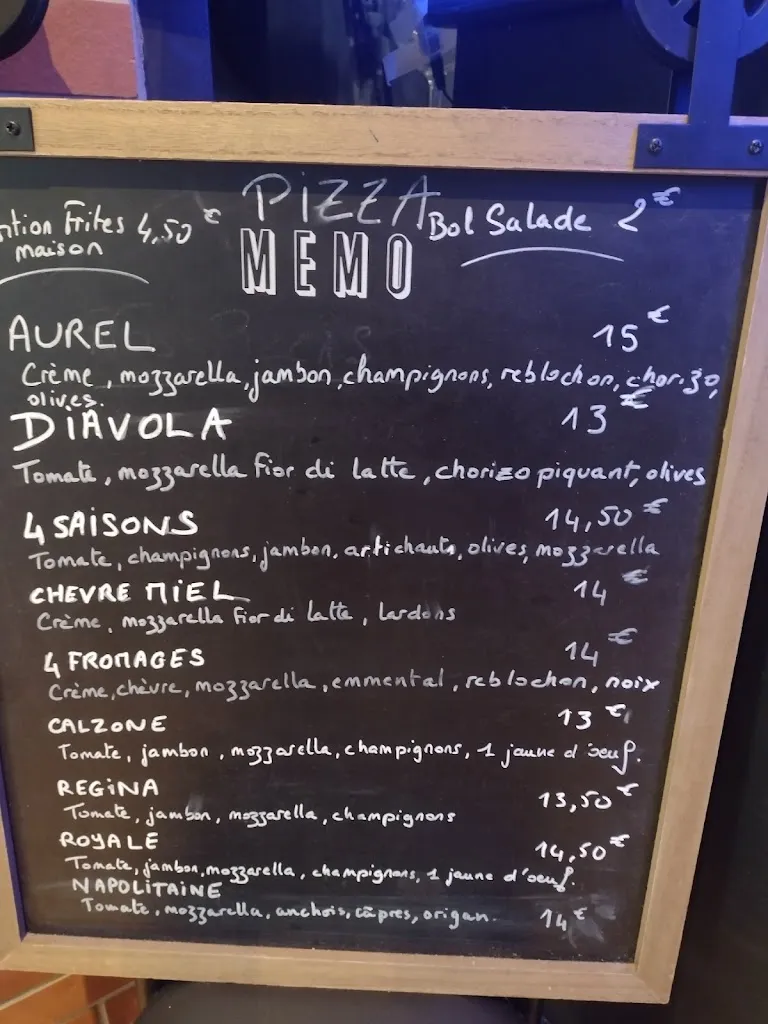 PIZZA
ntion Frites 4,50 €
maison
Bol Salade 2 €
MEMO
AUREL 15 €
Crème, mozzarella, jambon, champignons, reblochon, chorizo,
olives.
DiAVOLA 13 €
Tomate, mozzarella fior di latte, chorizo piquant, olives
4 SAiSONS 14,50 €
Tomate, champignons, jambon, artichauts, olives, mozzarella
CHEVRE MiEL 14 €
Crème, mozzarella fior di latte, lardons
4 FROMAGES 14 €
Crème, chèvre, mozzarella, emmental, reblochon, noix
CALZONE 13 €
Tomate, jambon, mozzarella, champignons, 1 jaune d'oeuf.
REGiNA 13,50 €
Tomate, jambon, mozzarella, champignons
ROYALE 14,50 €
Tomate, jambon, mozzarella, champignons, 1 jaune d'oeuf.
NAPOLiTAiNE
Tomate, mozzarella, anchois, câpres, origan. 14 €